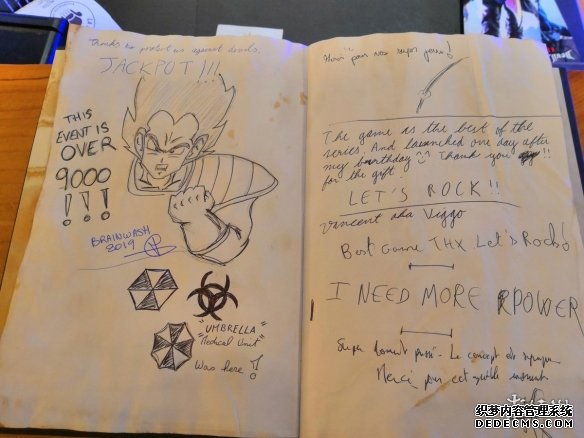 Thanks to protect us against devils.
JACKPOT!!!
THIS
EVENT IS
OVER
9000
!!!
BRAINWASH
2019
"UMBRELLA"
"Medical Unit"
Was here !
Merci pour nos super jeux !
The game as the best of the
series. And launched one day after
my birthday ^^ Thank you !!
for the gift.
LET'S ROCK !!
Vincent aka Viggo
Best Game THX Let's Rock !
I NEED MORE POWER
Super moment passé. Le concept est
Merci pour cet moment
织梦内容管理系统
DEDECMS.COM